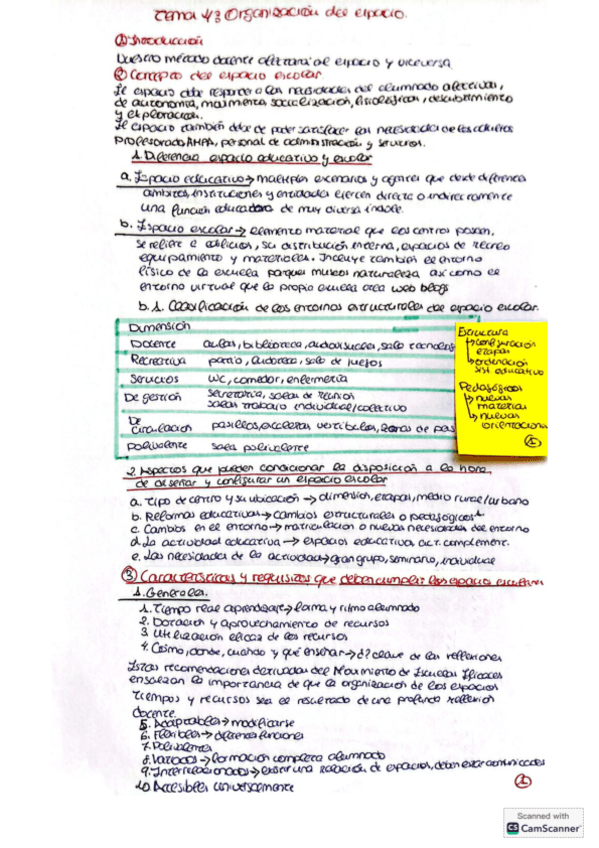 Tema 4/3 Organización del espacio.
① Introducción
Nuestro método docente afectará al espacio y viceversa
② Concepto del espacio escolar
El espacio debe responder a las necesidades del alumnado afectivas,
de autonomía, movimiento, socialización, fisiológicas, descubrimiento
y exploración.
El espacio también debe de poder satisfacer las necesidades de los adultos
Profesorado AMPA, personal de administración y servicios.
1. Diferencia espacio educativo y escolar
a. Espacio educativo → múltiples escenarios y agentes que desde diferentes
ámbitos, instituciones y entidades ejercen directa o indirectamente
una función educadora de muy diversa índole.
b. Espacio escolar → elemento material que los centros poseen,
se refiere a edificios, su distribución interna, espacios de recreo
equipamiento y materiales. Incluye también el entorno
físico de la escuela parques museos naturaleza así como el
entorno virtual que la propia escuela crea web blogs
b.1. Clasificación de los entornos estructurales del espacio escolar.
Dimensión
Docente aulas, biblioteca, audiovisuales, sala tecnolog
Recreativa patio, ludoteca, sala de juegos
Servicios WC, comedor, enfermería
De gestión Secretaría, salas de reunión
salas trabajo individual/colectivo
De
circulación pasillos, escaleras vestíbulos, zonas de pas
Polivalente sala polivalente
Estructura
↳ configuración
etapas
↳ ordenación
sist educativo
Pedagógicos
↳ nuevas
materias
↳ nuevas
orientaciones
①
2. Aspectos que pueden condicionar la disposición a la hora
de diseñar y configurar un espacio escolar
a. Tipo de centro y su ubicación → dimensión, etapas, medio rural/urbano
b. Reformas educativas → Cambios estructurales o pedagógicos
c. Cambios en el entorno → matriculación o nuevas necesidades del entorno
d. La actividad educativa → espacios educativos act. complement.
e. Las necesidades de la actividad → gran grupo, seminario, individual
③ Características y requisitos que deben cumplir los espacios escolares
1. Generales.
1. Tiempo real aprendizaje → forma y ritmo alumnado
2. Dotación y aprovechamiento de recursos
3. Utilización eficaz de los recursos
4. Cómo, donde, cuando y qué enseñar → clave de las reflexiones
Estas recomendaciones derivadas del Movimiento de Escuelas Eficaces
ensalzan la importancia de que la organización de los espacios
tiempos y recursos sea el resultado de una profunda reflexión
docente.
5. Adaptables → modificarse
6. Flexibles → diferentes funciones
7. Polivalentes
8. Variados → formación completa alumnado
9. Interrelacionados → existir una relación de espacios, deben estar comunicados
10. Accesibles universalmente
①
Scanned with
CS CamScanner